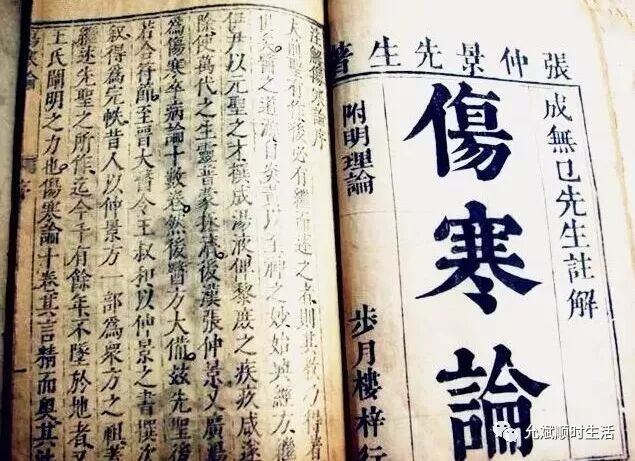 張仲景先生著
成無已先生註解
傷寒論
附明理論
步月樓梓行
註解傷寒論序
夫前聖有作後必有繼而述之者則其教乃得著
矣醫之道源自炎黃以至神之妙始興經方繼
伊尹以元聖之才撰成湯液俾黎庶之疾疢咸遂
除使萬代之生靈普蒙拯濟後漢張仲景又廣湯
爲傷寒卒病論十數卷然後醫方大備茲先聖後
若合符節至晉太醫令王叔和以仲景之書撰次
叙得爲完帙昔人以仲景方一部爲衆方之祖蓋
繼述先聖之所作迄今千有餘年不墜於地者又
王氏闡明之力也傷寒論十卷其言精而奧其法
傷寒論
允斌顺时生活